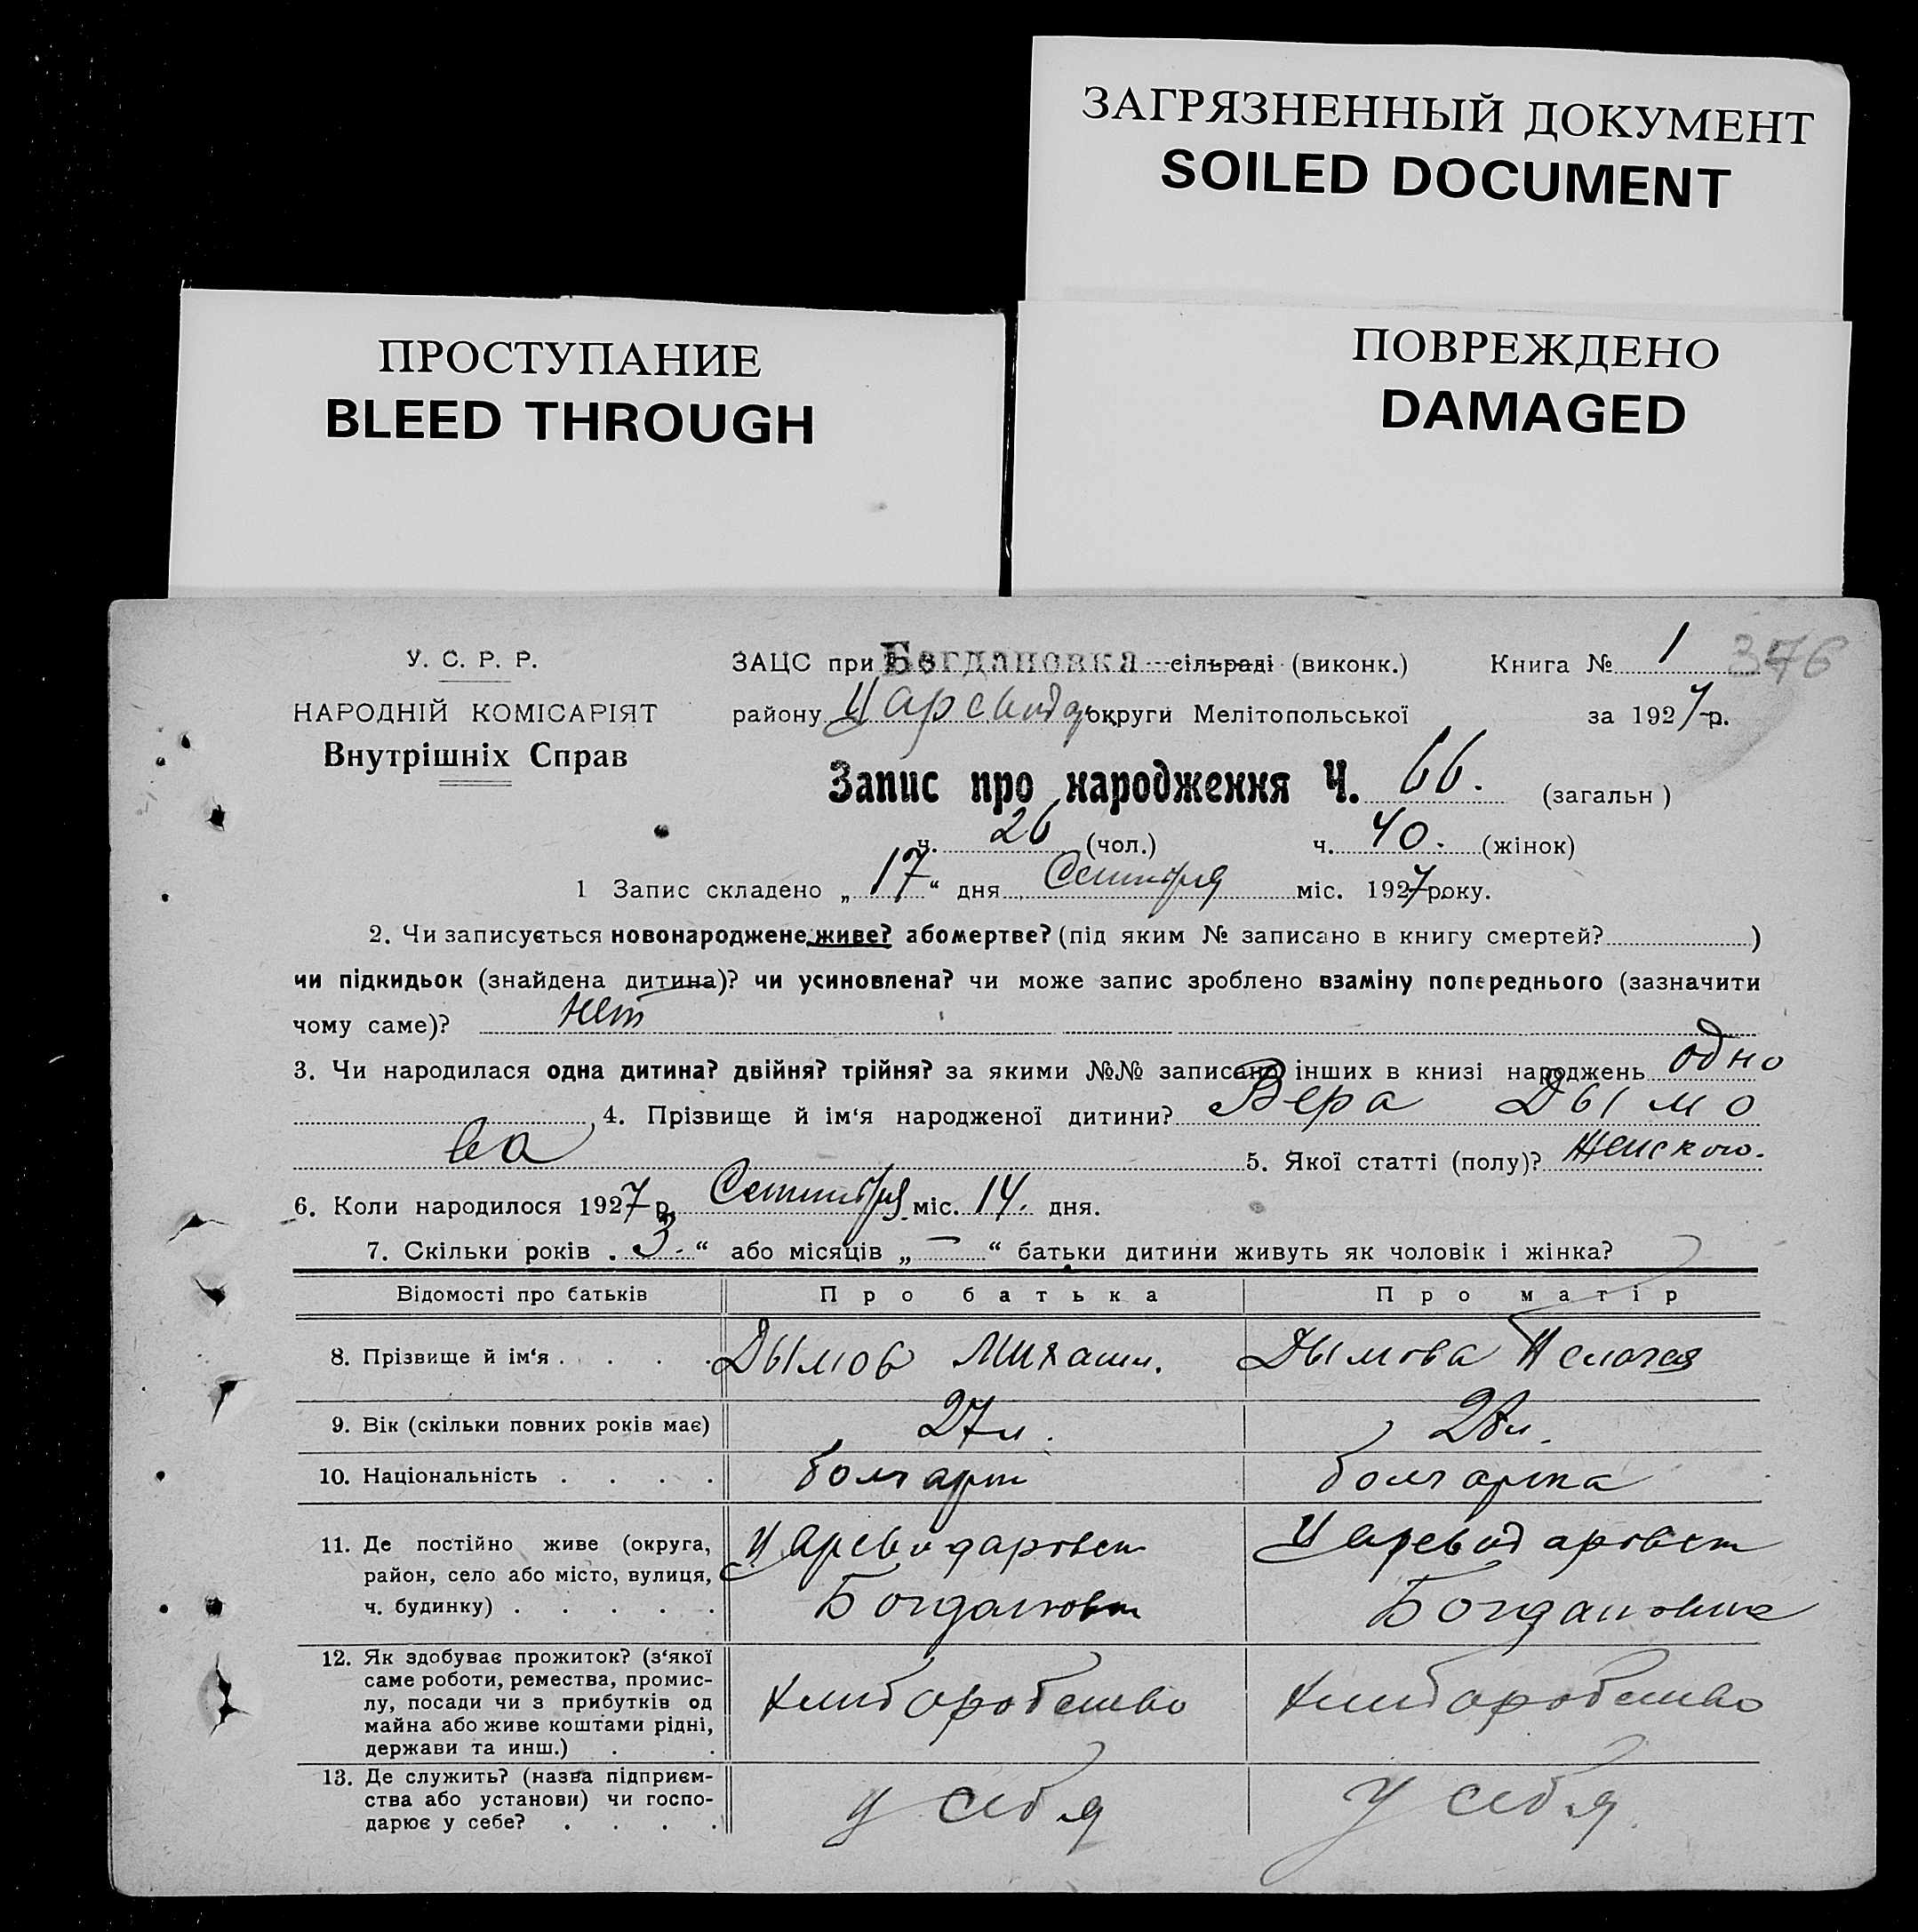 ЗАГРЯЗНЕННЫЙ ДОКУМЕНТ
SOILED DOCUMENT
ПРОСТУПАНИЕ
BLEED THROUGH
ПОВРЕЖДЕНО
DAMAGED
У. С. Р. Р.
НАРОДНІЙ КОМІСАРІЯТ
Внутрішніх Справ
ЗАЦС при Богдановка сільраді (виконк.) Книга № 1 376
району Царевода округи Мелітопольської за 1927 р.
Запис про народження Ч. 66. (загальн)
ч. 26 (чол.) ч. 40. (жінок)
1 Запис складено „17“ дня Сентября міс. 1927 року.
2. Чи записується новонароджене живе? або мертве? (під яким № записано в книгу смертей? )
чи підкидьок (знайдена дитина)? чи усиновлена? чи може запис зроблено взаміну попереднього (зазначити
чому саме)? нет
3. Чи народилася одна дитина? двійня? трійня? за якими №№ записано інших в книзі народжень одно
4. Прізвище й ім‘я народженої дитини? Вера Дымо
ва 5. Якої статті (полу)? Женского.
6. Коли народилося 1927 р. Сентября міс. 14. дня.
7. Скільки років „3.“ або місяців „—“ батьки дитини живуть як чоловік і жінка?
Відомості про батьків Про батька Про матір
8. Прізвище й ім‘я . . . . Дымов Михаил. Дымова
9. Вік (скільки повних років має) 27 л. 28 л.
10. Національність . . . . болгарин болгарка
11. Де постійно живе (округа, Цареводаровск Цареводаровск
район, село або місто, вулиця,
ч. будинку) . . . . . Богдановка Богдановка
12. Як здобуває прожиток? (з‘якої
саме роботи, ремества, промис-
лу, посади чи з прибутків од хлиборобство хлиборобство
майна або живе коштами рідні,
держави та инш.) . .
13. Де служить? (назва підприєм-
ства або установи) чи госпо- у себя у себя.
дарює у себе? . . . .